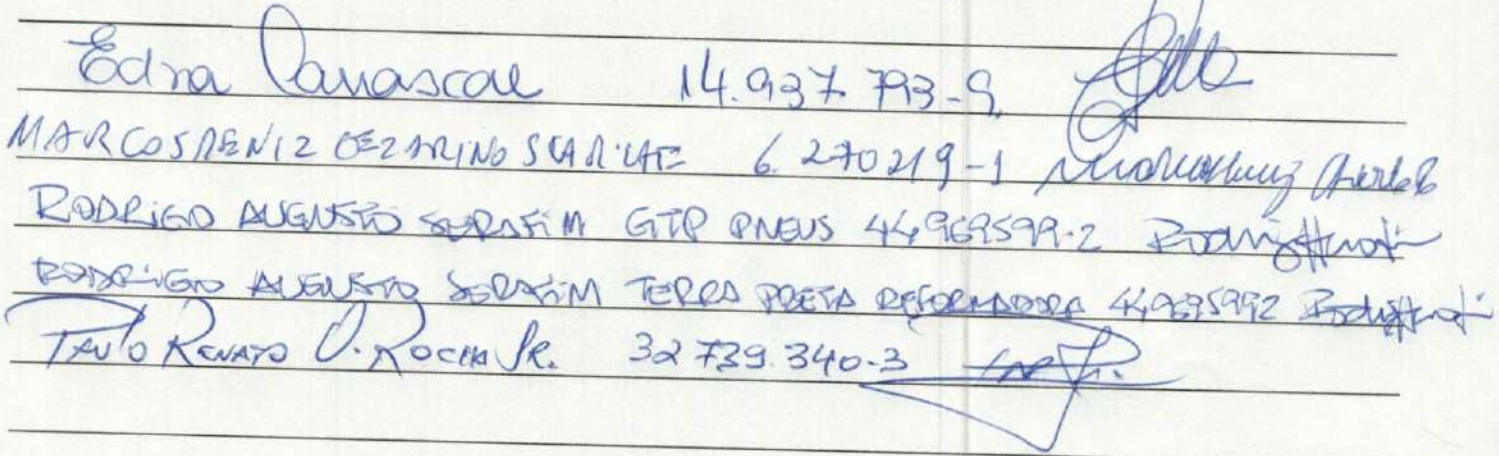 Edna Carrascal 14.937.793-9
MARCOS DENIZ CEZARINO 6.270219-1
RODRIGO AUGUSTO SERAFIM GTP PNEUS 44969599-2
RODRIGO AUGUSTO SERAFIM TERRA PRETA REFORMADORA 449695992
PAULO RENATO O. ROCHA JR. 32 739.340-3